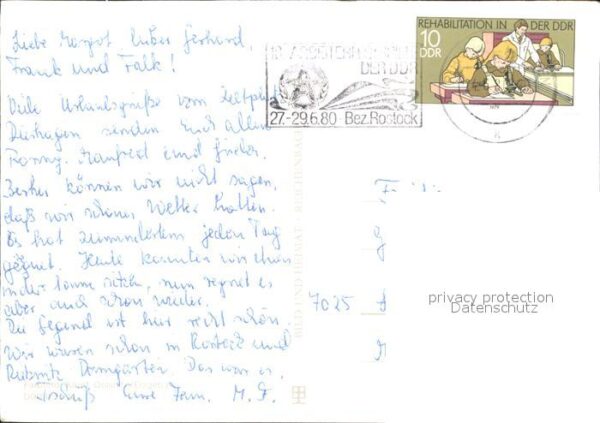 Liebe Margot lieber Gerhard,
Frank und Falk!
Viele Urlaubsgrüße vom Zeltplatz
Dierhagen senden Euch allen
Ronny, Manfred und
können wir nicht sagen,
daß wir schönes Wetter hatten.
Es hat zumindestens jeden Tag
geregnet. Heute konnten wir schon
in der Sonne sitzen, nun regnet es
aber auch schon wieder.
Die Gegend ist hier recht schön.
Wir waren schon in Rostock und
Ribnitz Damgarten. Das war es.
Tschüß Eure Fam. M. F.
ARBEITERFESTSPIELE
DER DDR
27.-29.6.80 Bez. Rostock
REHABILITATION IN DER DDR
10
DDR
1979
7025
BILD UND HEIMAT REICHENBACH
privacy protection
Datenschutz